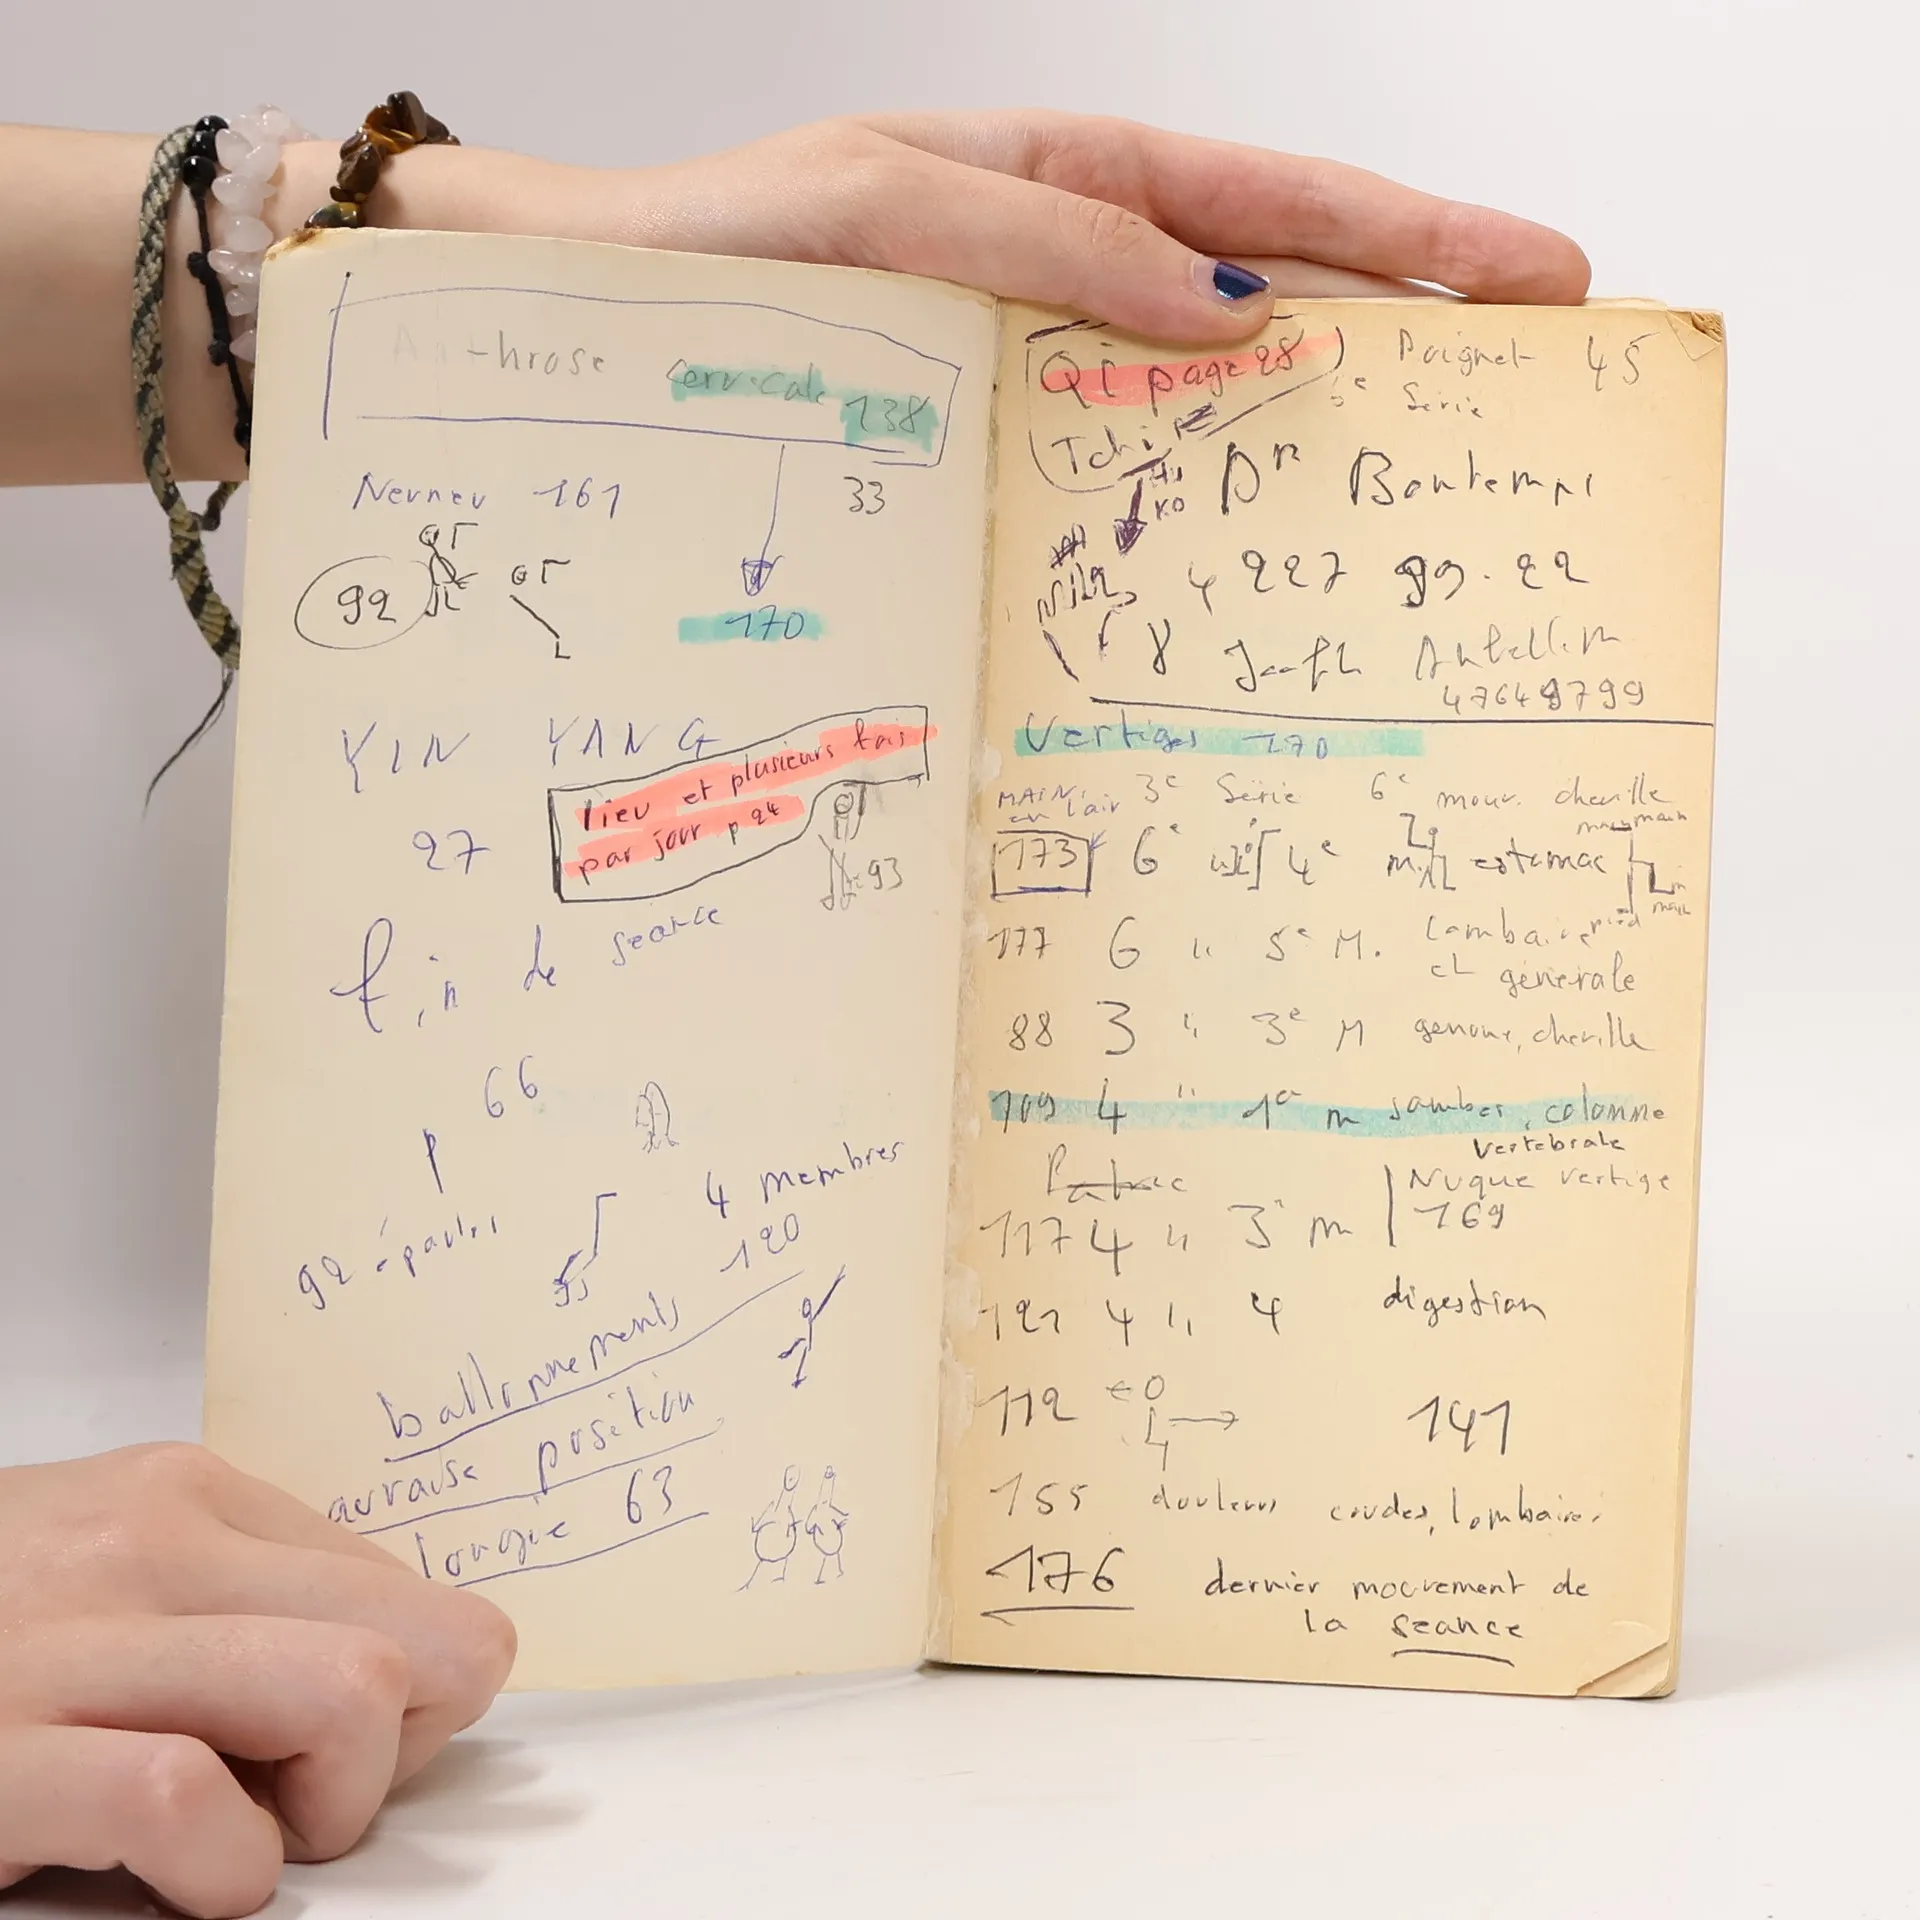 Arthrose cervicale 138
33
161
92
170
YIN YANG
lieu et plusieurs fois
par jour p 24
27
93
fin de seance
66
4 membres
120
92 épaules
ballonnements
mauvaise position
longue 63
Qi page 28
Tchi
Poignet 45
Serie
Dr Bontempi
4 227 99.22
8 Joseph
47649799
Vertiges 170
MAIN en l'air 3e Serie 6e mouv. cheville
173 6e 4e estomac
main
pied
177 6 " 5e M. Lombaire
et générale
88 3 " 3e M genoux, cheville
109 4 " 1er m jambes, colonne
vertebrale
117 4 " 3e m
Nuque vertige
169
121 4 " 4 digestion
112 141
155 douleurs coudes, lombaires
176 dernier mouvement de
la seance